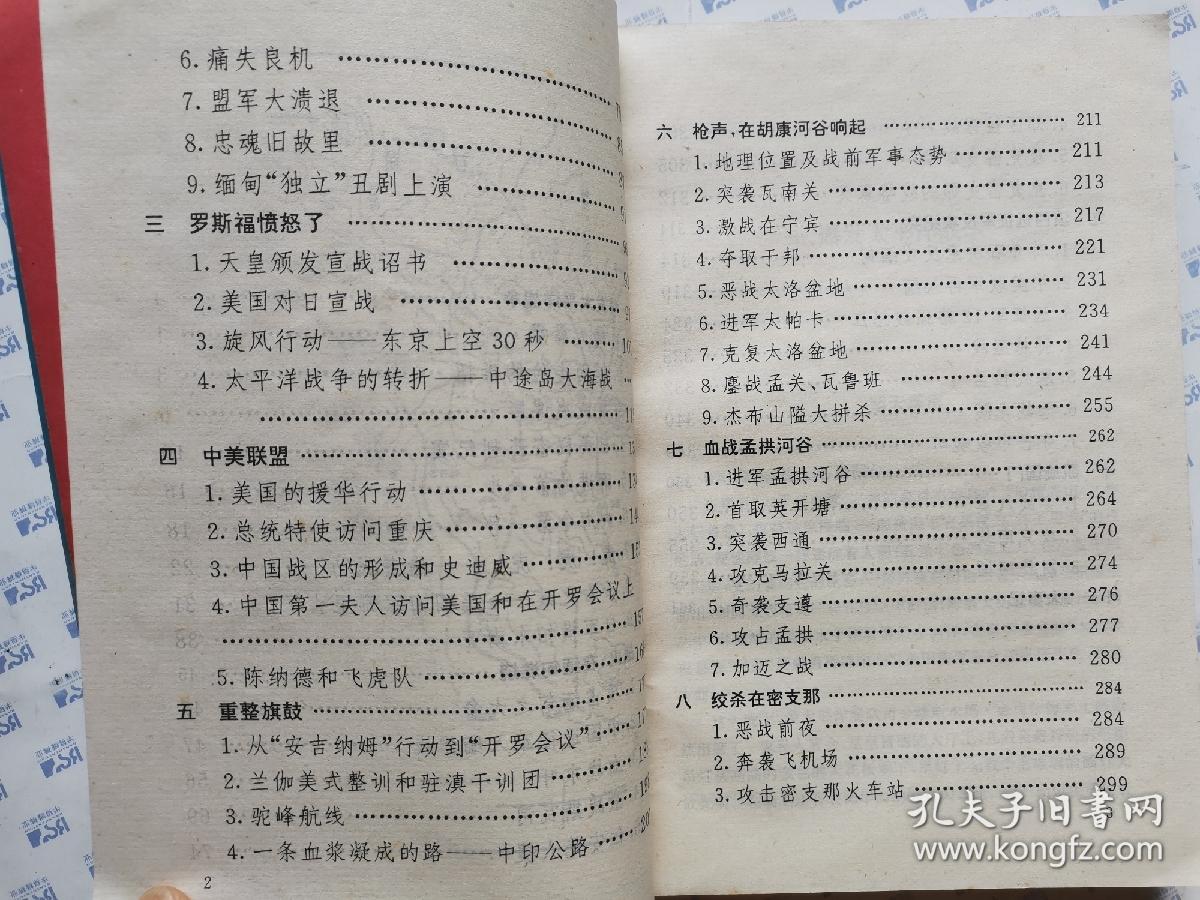 6.痛失良机
7.盟军大溃退
8.忠魂旧故里
9.缅甸“独立”丑剧上演
三 罗斯福愤怒了
1.天皇颁发宣战诏书
2.美国对日宣战
3.旋风行动——东京上空30秒
4.太平洋战争的转折——中途岛大海战
四 中美联盟
1.美国的援华行动
2.总统特使访问重庆
3.中国战区的形成和史迪威
4.中国第一夫人访问美国和在开罗会议上
………… 157
5.陈纳德和飞虎队
五 重整旗鼓
1.从“安吉纳姆”行动到“开罗会议”
2.兰伽美式整训和驻滇干训团
3.驼峰航线
4.一条血浆凝成的路——中印公路
2
六 枪声、在胡康河谷响起 ………… 211
1.地理位置及战前军事态势 ………… 211
2.突袭瓦南关 ………… 213
3.激战在宁宾 ………… 217
4.夺取于邦 ………… 221
5.恶战太洛盆地 ………… 231
6.进军太帕卡 ………… 234
7.克复太洛盆地 ………… 241
8.鏖战孟关、瓦鲁班 ………… 244
9.杰布山隘大拼杀 ………… 255
七 血战孟拱河谷 ………… 262
1.进军孟拱河谷 ………… 262
2.首取英开塘 ………… 264
3.突袭西通 ………… 270
4.攻克马拉关 ………… 274
5.奇袭支遵 ………… 276
6.攻占孟拱 ………… 277
7.加迈之战 ………… 280
八 绞杀在密支那 ………… 284
1.恶战前夜 ………… 284
2.奔袭飞机场 ………… 289
3.攻击密支那火车站 ………… 299
孔夫子旧书网
www.kongfz.com